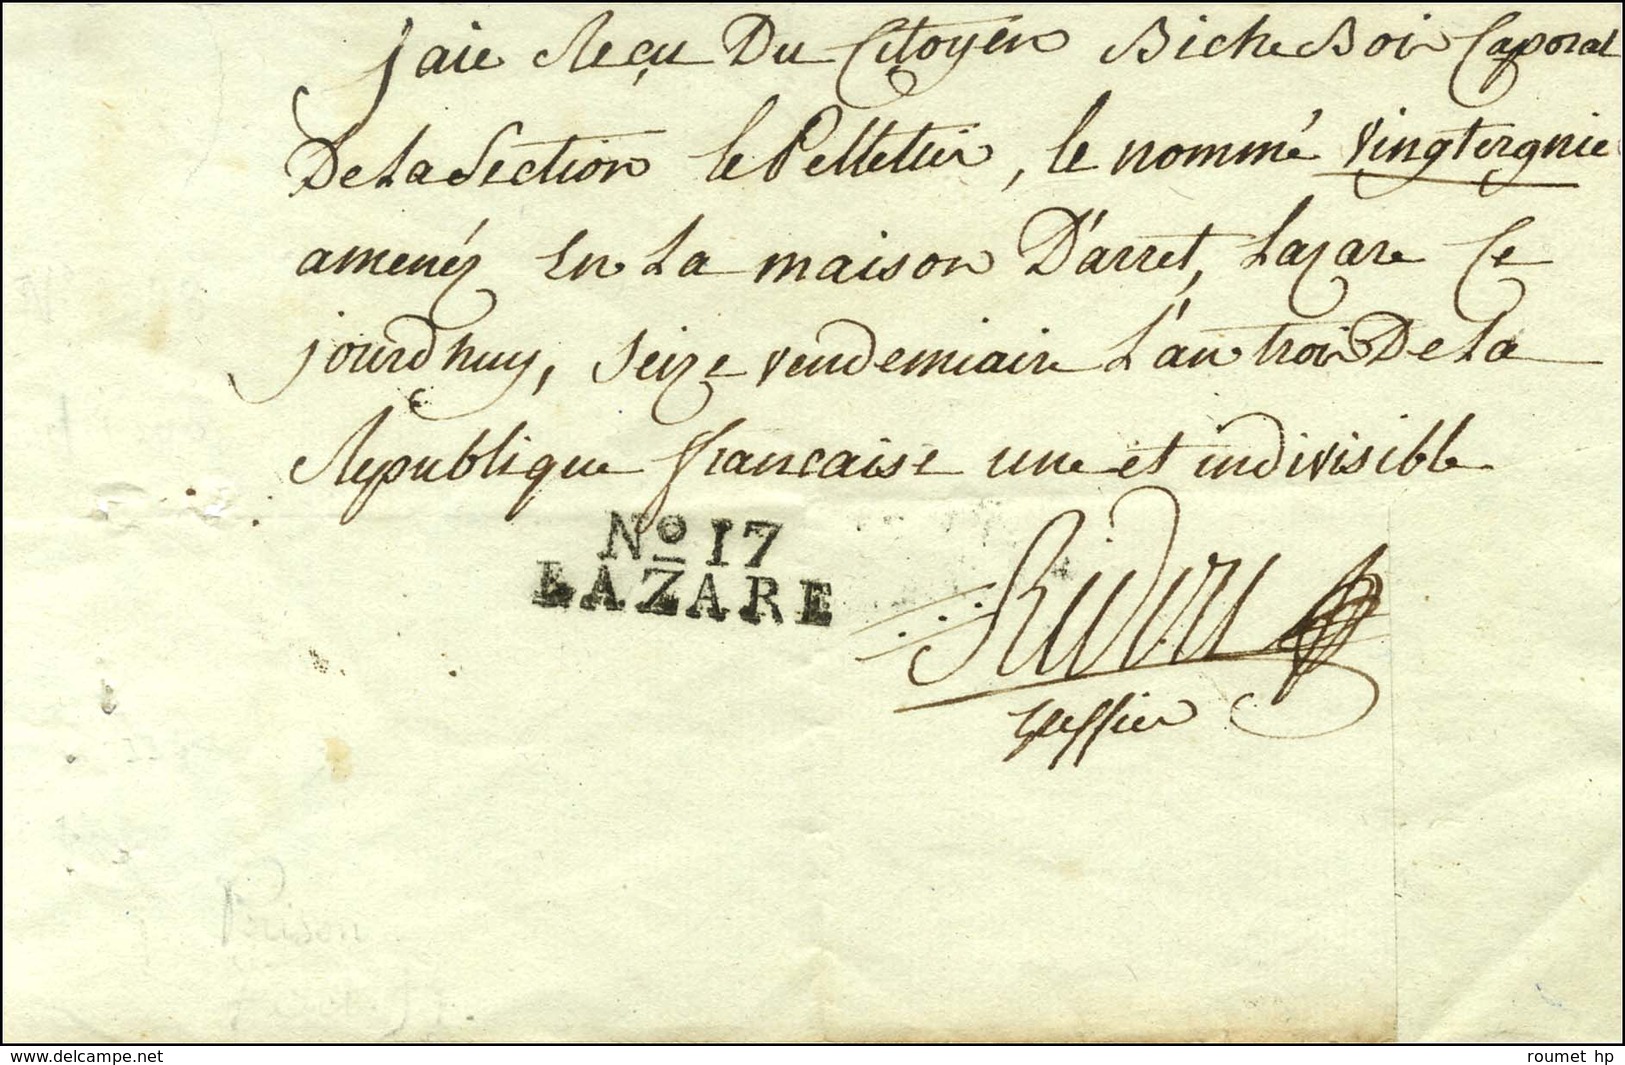 jaie Reçu Du Citoyen Biche Boir Caporal
De La Section le Pelletier, le nommé Vingtergnie
amenéz En La maison D'arret, Lazare Ce
jourdhuy, seize vendemiaire L'an trois De La
Republique francaise une et indivisible
Nº 17
LAZARE
greffier
Prison
www.delcampe.net
roumet hp